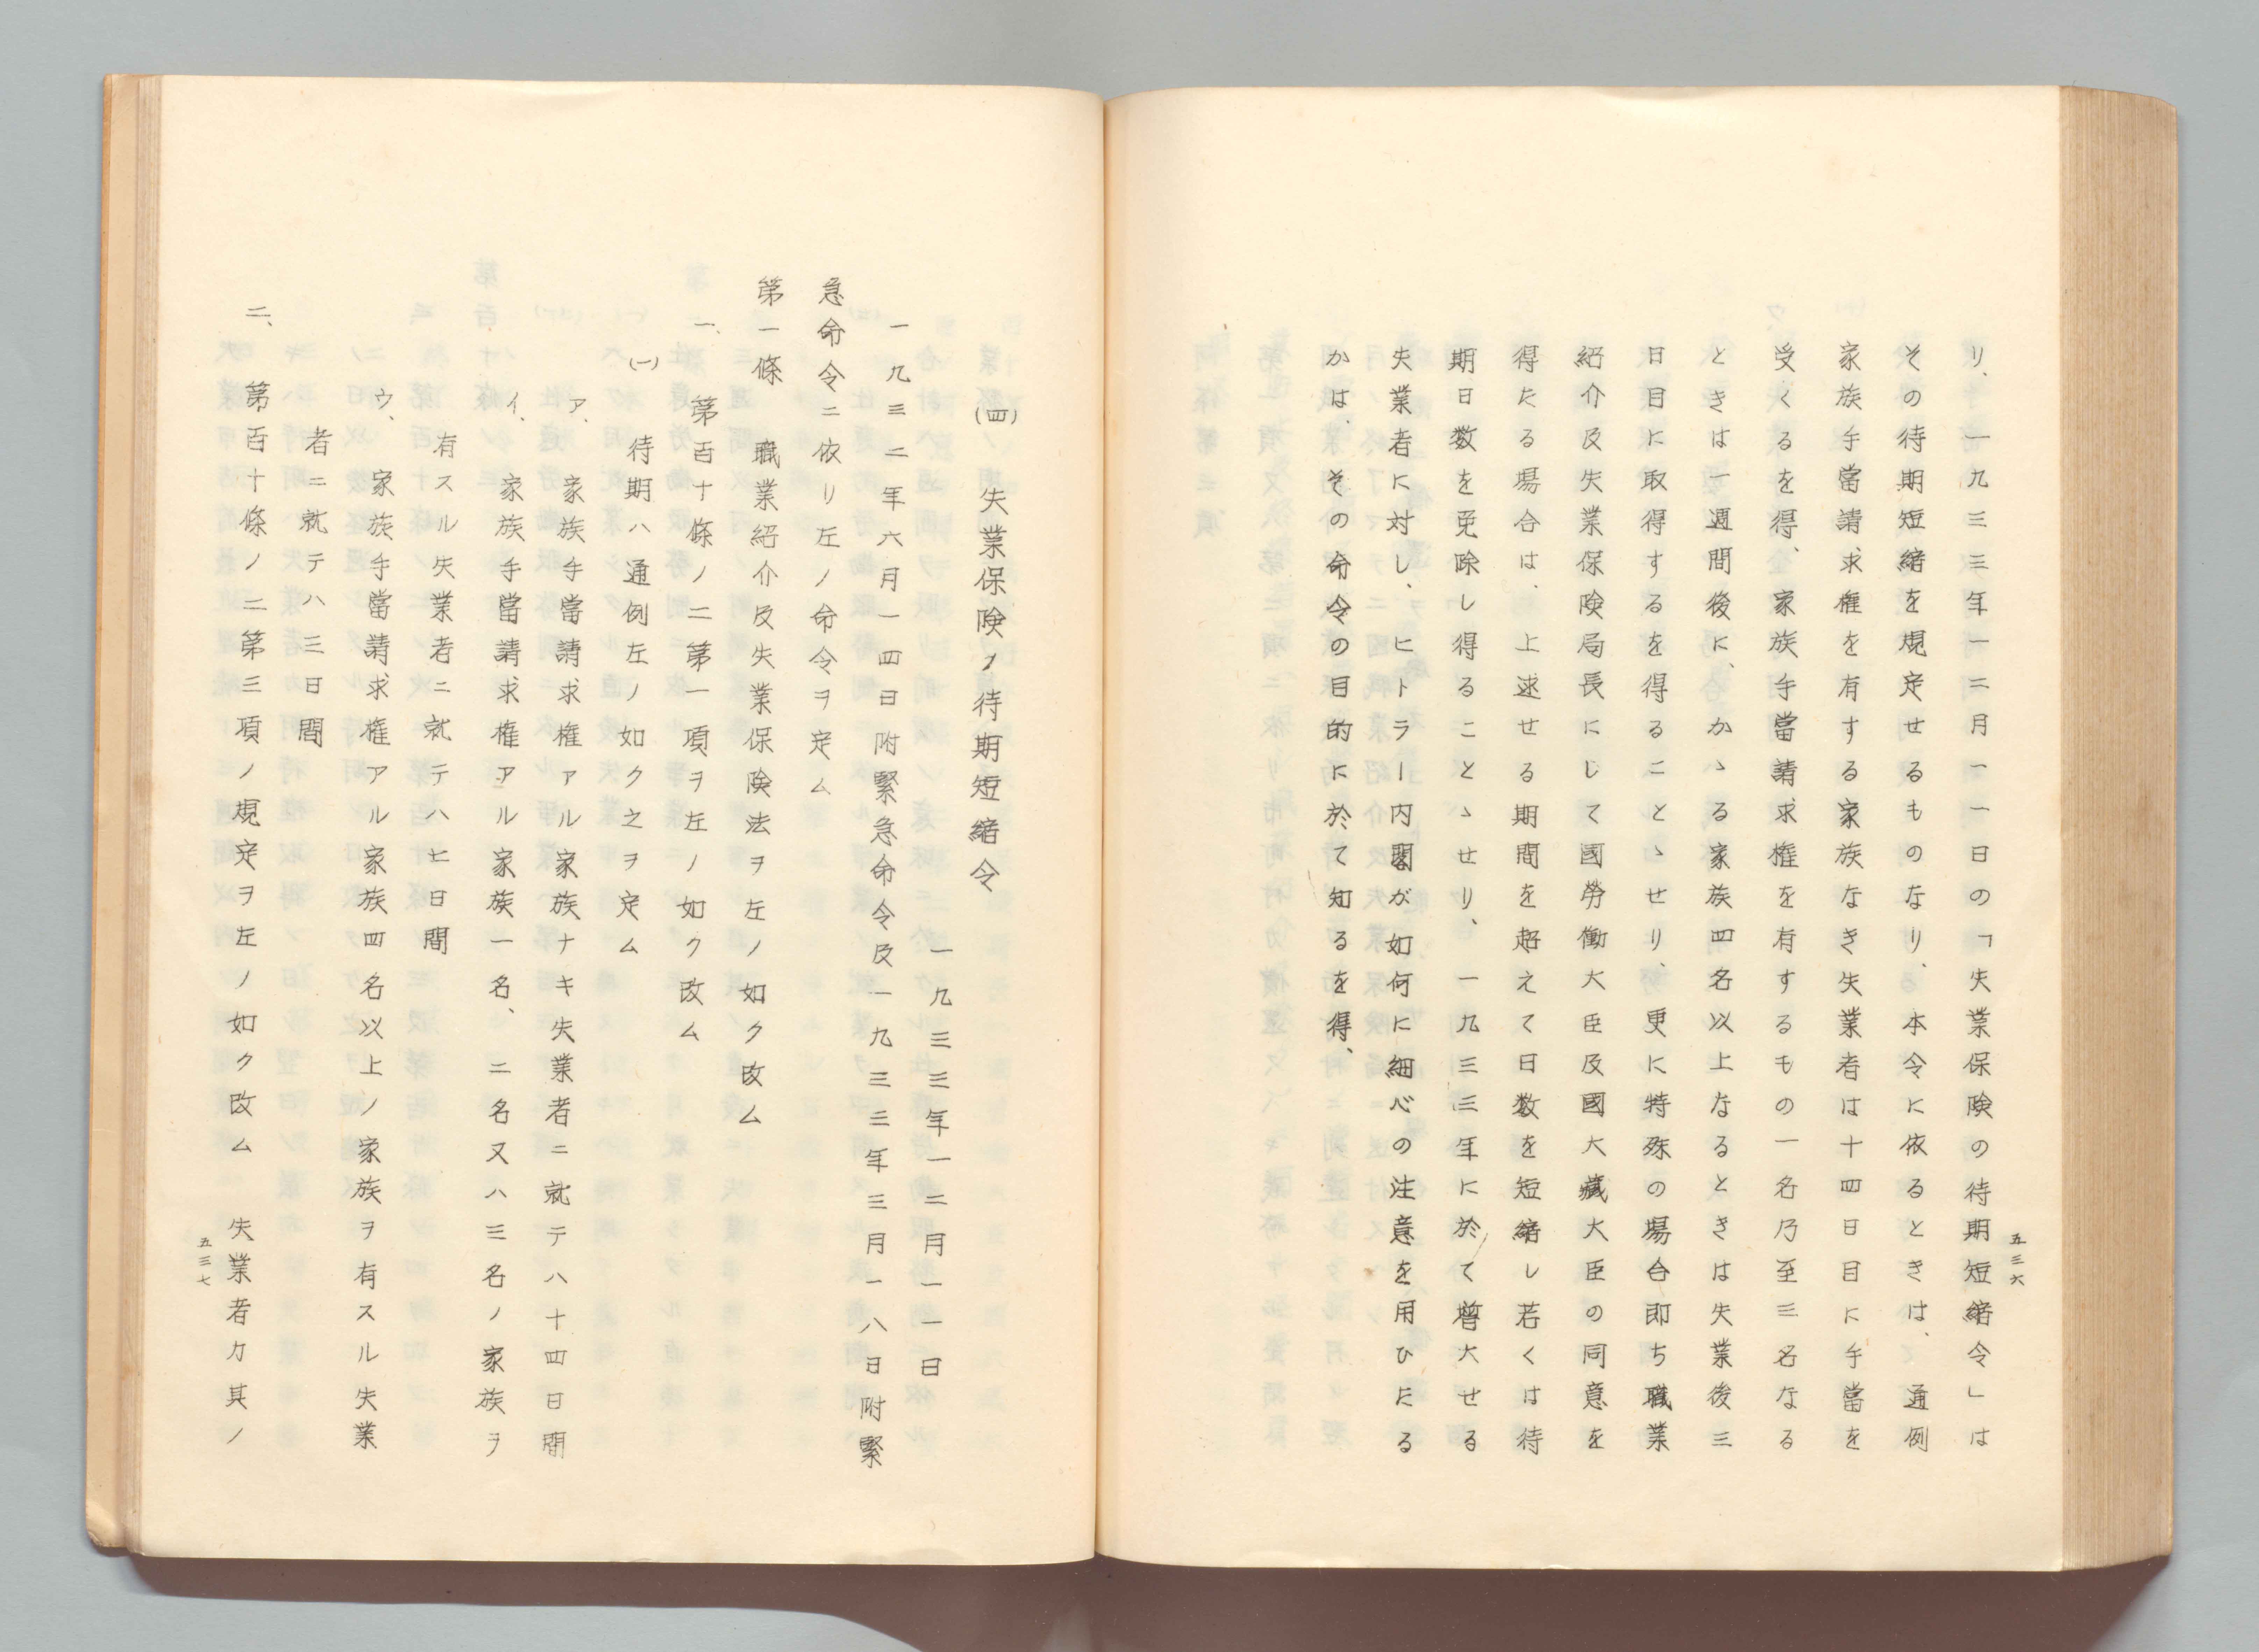 五三六
り、一九三三年一二月一一日の「失業保険の待期短縮令」は
その待期短縮を規定せるものなり、本令に依るときは、通例
家族手當請求権を有する家族なき失業者は十四日目に手當を
受くるを得、家族手當請求権を有するもの一名乃至三名なる
ときは一週間後に、かゝる家族四名以上なるときは失業後三
日目に取得するを得ることゝせり、更に特殊の場合即ち職業
紹介及失業保険局長にして國勞働大臣及國大藏大臣の同意を
得たる場合は、上述せる期間を超えて日数を短縮し若くは待
期日数を免除し得ることゝせり、一九三三年に於て増大せる
失業者に対し、ヒトラー内閣が如何に細心の注意を用ひたる
かは、その命令の目的に於て知るを得、
(四) 失業保険ノ待期短縮令
一九三三年一二月一一日
一九三二年六月一四日附緊急命令及一九三三年三月一八日附緊
急命令ニ依リ左ノ命令ヲ定ム
第一條 職業紹介及失業保険法ヲ左ノ如ク改ム
一、第百十條ノ二第一項ヲ左ノ如ク改ム
(一) 待期ハ通例左ノ如ク之ヲ定ム
ア、家族手當請求権アル家族ナキ失業者ニ就テハ十四日間
イ、家族手當請求権アル家族一名、二名又ハ三名ノ家族ヲ
有スル失業者ニ就テハ七日間
ウ、家族手當請求権アル家族四名以上ノ家族ヲ有スル失業
者ニ就テハ三日間
二、第百十條ノ二第三項ノ規定ヲ左ノ如ク改ム 失業者カ其ノ
五三七